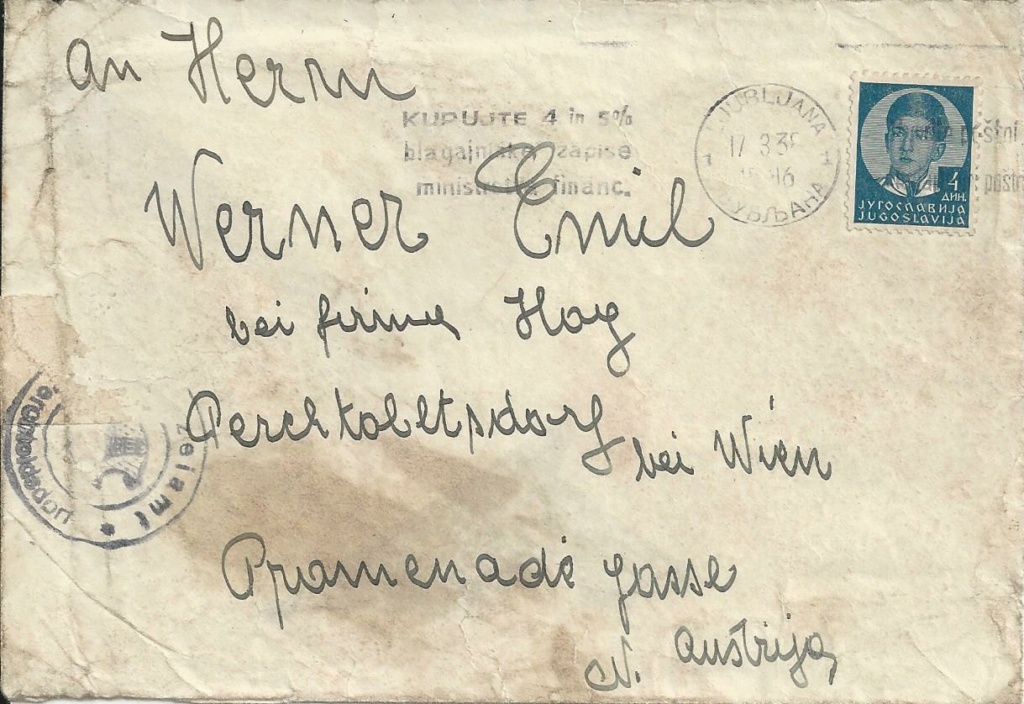 an Herrn
KUPUJTE 4 in 5%
blagajniške zapise
ministrstva financ.
LJUBLJANA
17 3 38
1 1
ЉУБЉАНА
4
ДИН.
ЈУГОСЛАВИЈА
JUGOSLAVIJA
Werner Emil
bei firma Hoy
Perchtoldtsdorf
bei Wien
Promenade gasse
N. Austrija